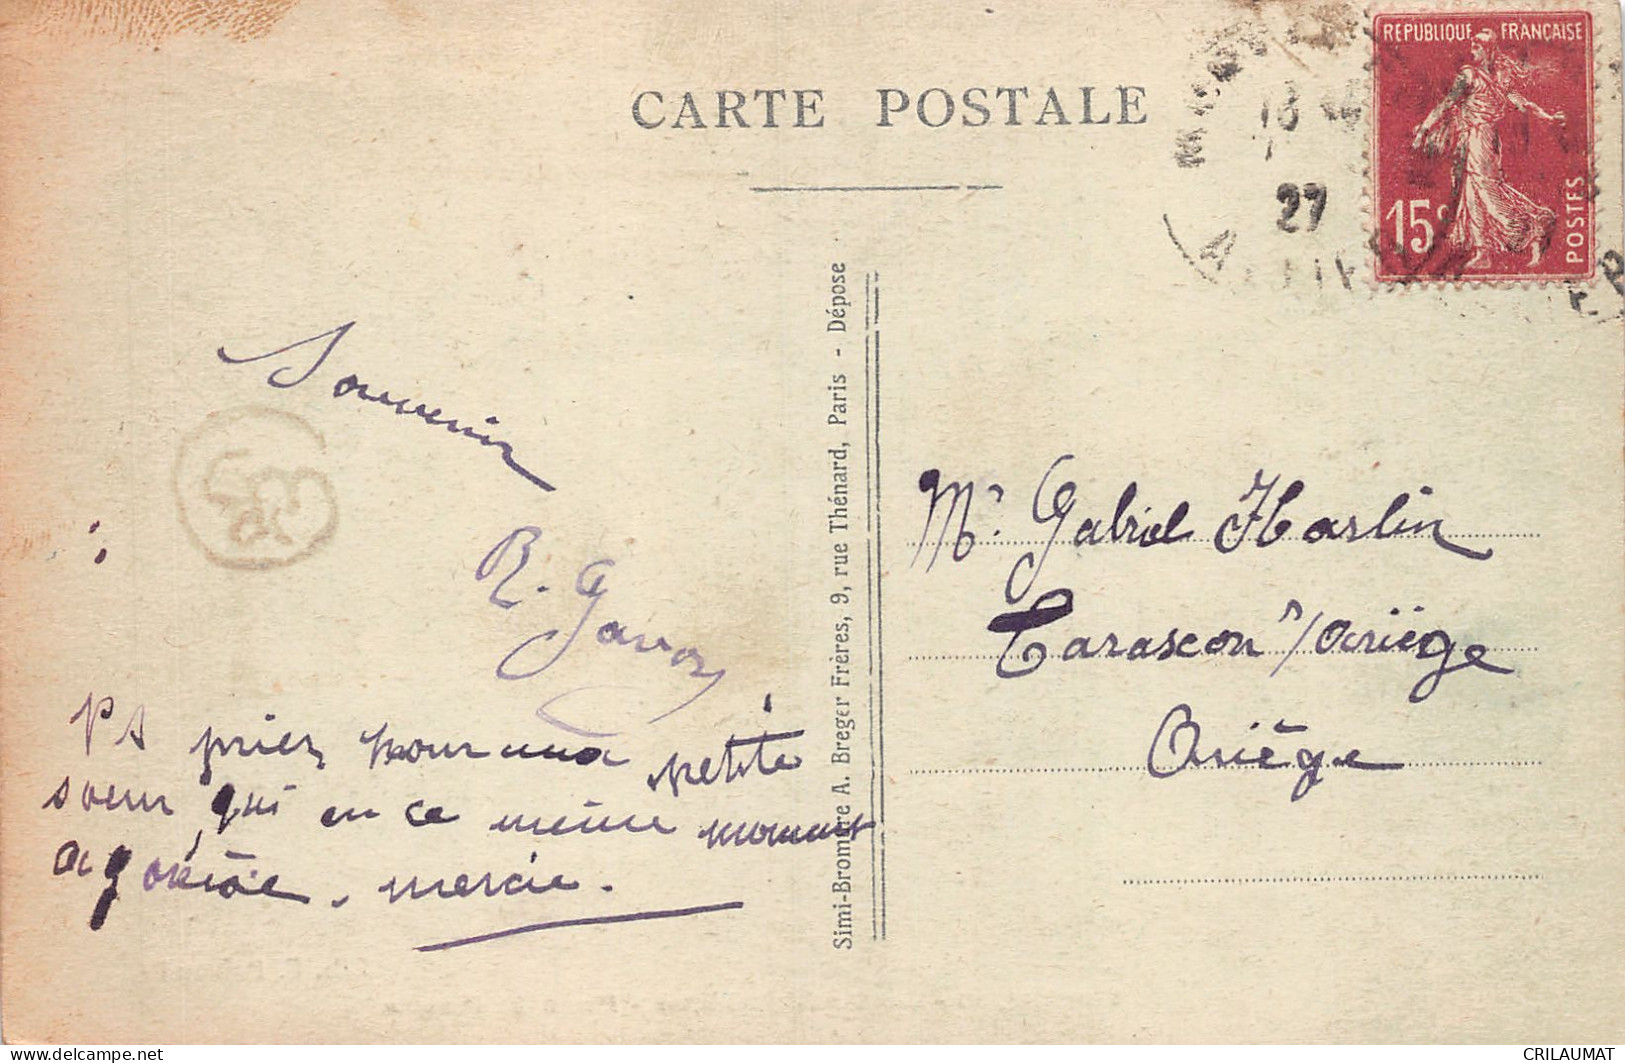 CARTE POSTALE
REPUBLIQUE FRANÇAISE
15c
POSTES
18
27
Souvenir
R. Gavoy
PS priez pour una petite
soeur, qui en ce même moment
agonise. mercie.
Simi-Bromure A. Breger Frères, 9, rue Thénard, Paris - Dépose
Mr. Gabriel Haslin
Tarascon s/Ariège
Ariège
www.delcampe.net
CRILAUMAT